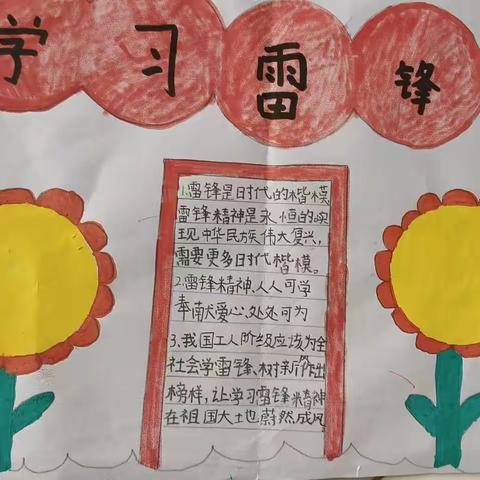 学习雷锋
1.雷锋是时代的楷模
雷锋精神是永恒的。
现中华民族伟大复兴,
需要更多时代楷模。
2.雷锋精神、人人可学
奉献爱心、处处可为
3.我国工人阶级应该为全
社会学雷锋、树新
榜样,让学习雷锋精神
在祖国大地蔚然成风